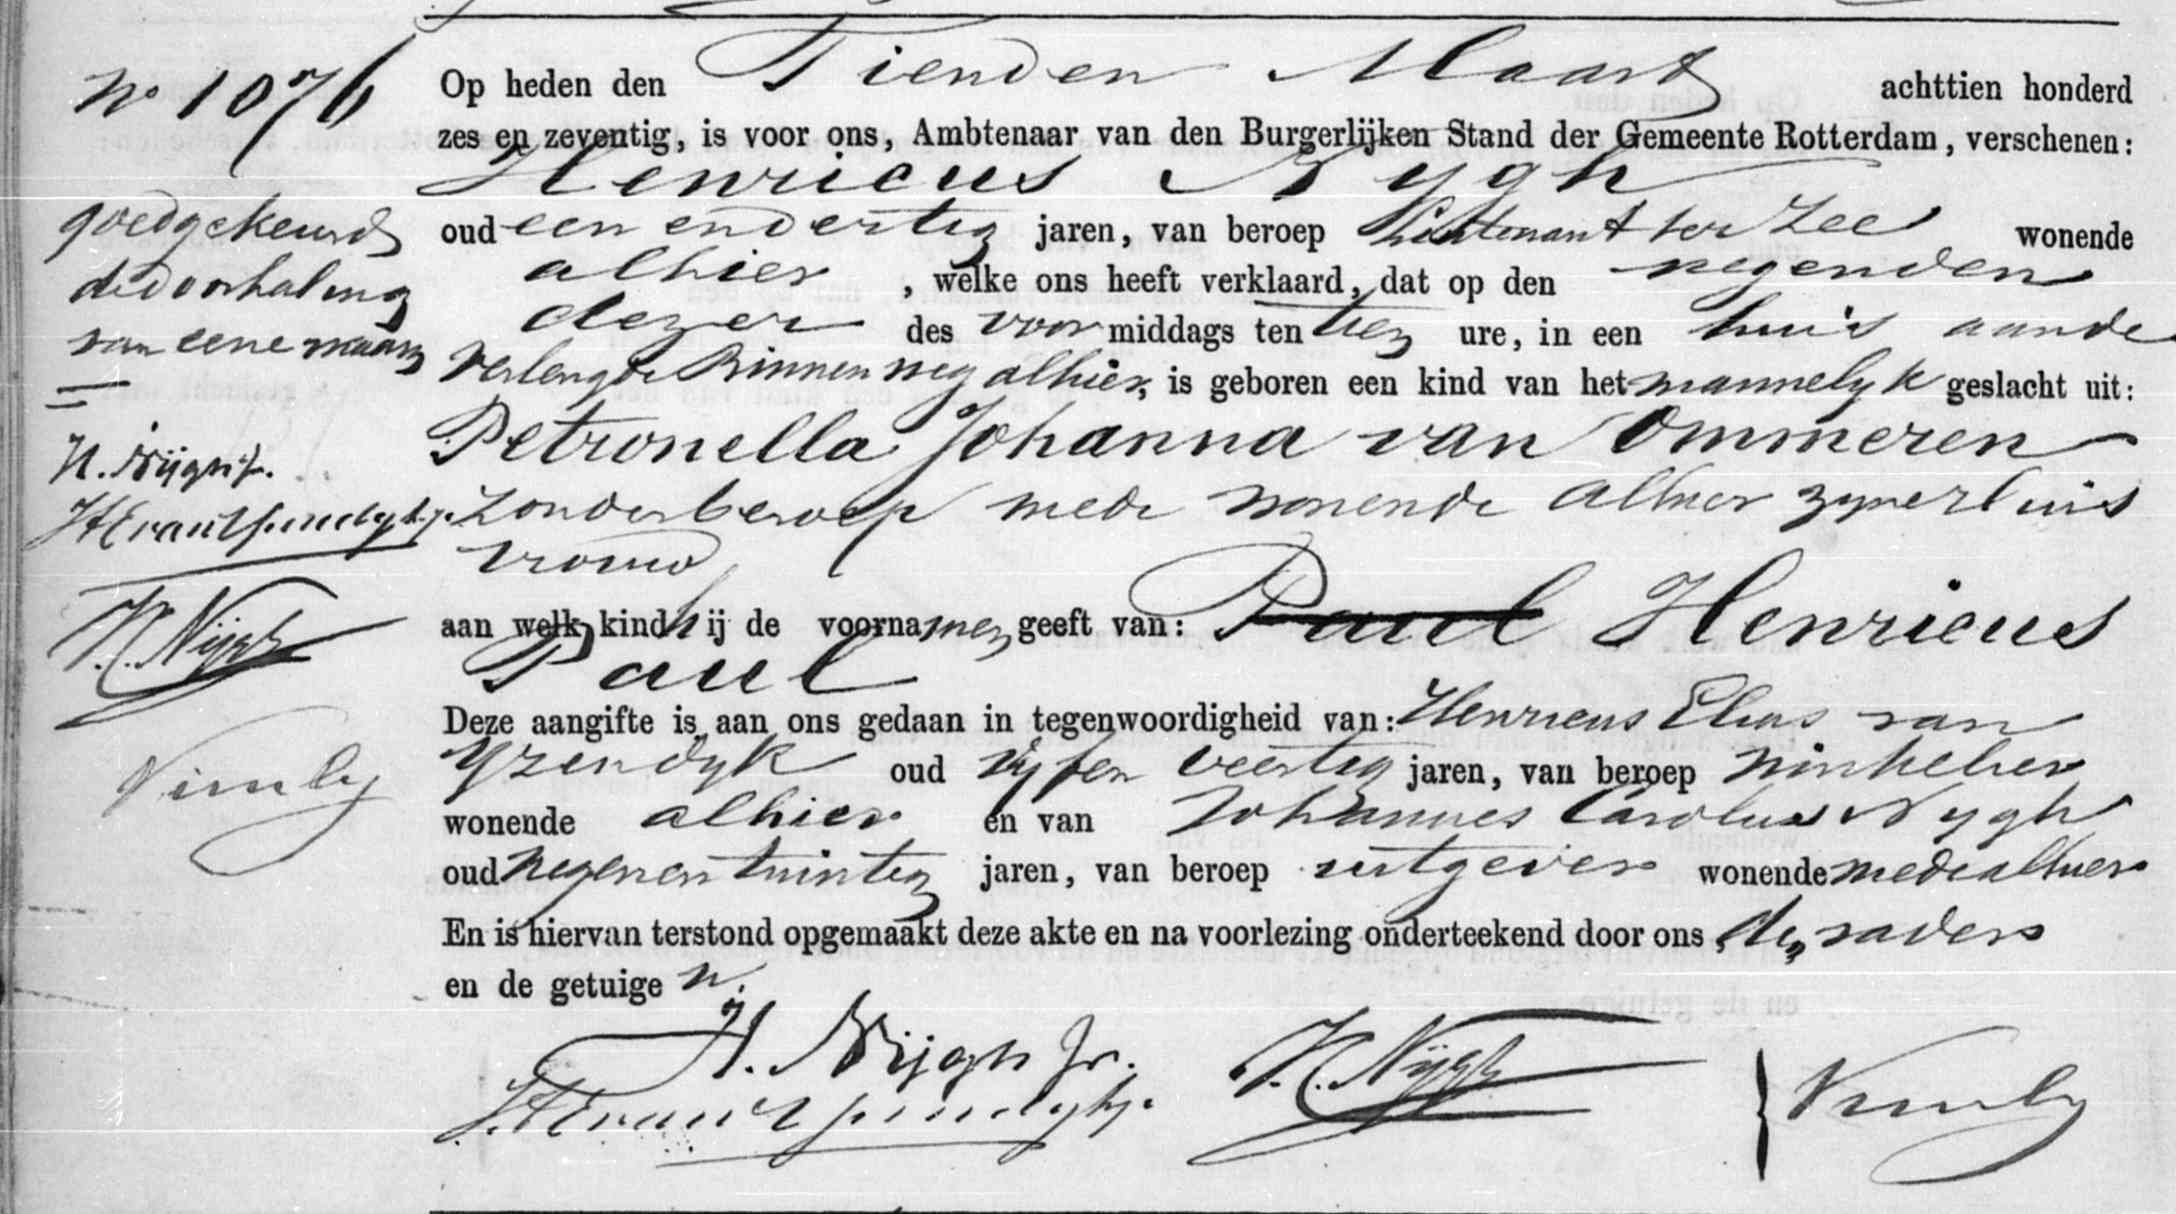 No 1076
Op heden den Tienden Maart achttien honderd
zes en zeventig, is voor ons, Ambtenaar van den Burgerlijken Stand der Gemeente Rotterdam, verschenen:
Henricus Nygh
oud een en dertig jaren, van beroep Luitenant ter Zee wonende
alhier, welke ons heeft verklaard, dat op den negenden
dezer des voormiddags ten tien ure, in een huis aan de
verlengde Binnenweg alhier, is geboren een kind van het mannelyk geslacht uit:
Petronella Johanna van Ommeren
zonder beroep mede wonende alhier zyne huis
vrouw
aan welk kind hij de voornamen geeft van: Paul Henricus
Paul
Deze aangifte is aan ons gedaan in tegenwoordigheid van: Henricus Elias van
Yzendyk oud vyf en veertig jaren, van beroep winkelier
wonende alhier en van Johannes Carolus Nygh
oud negen en twintig jaren, van beroep uitgever wonende mede alhier
En is hiervan terstond opgemaakt deze akte en na voorlezing onderteekend door ons, den vader
en de getuigen.
goedgekeurd
de doorhaling
van eene naam
H. Nijgh Jr.
H. Nijgh Jr.